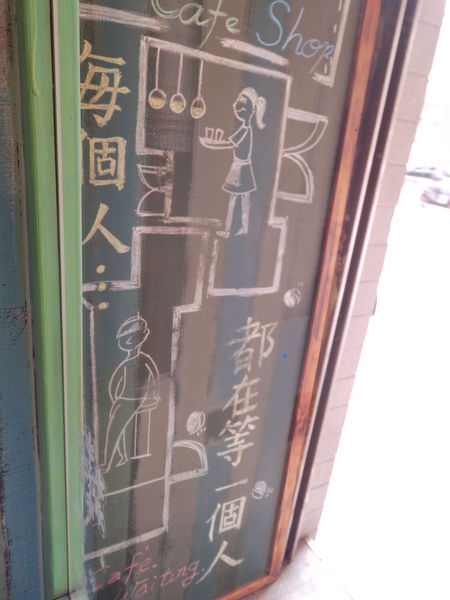 Cafe Shop
每個人⋯
都在等一個人
Café.
Waiting.